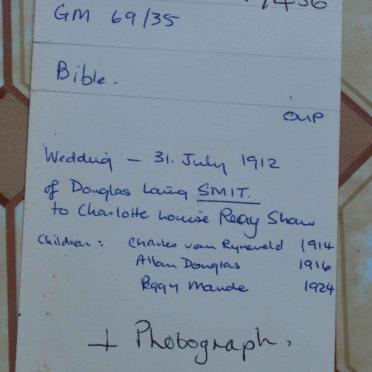 GM 69/35
Bible.
OUP
Wedding – 31. July 1912
of Douglas Laing SMIT.
to Charlotte Louise Reay Shaw
Children : Charles van Ryneveld 1914
Allan Douglas 1916
Peggy Maude 1924
+ Photograph.